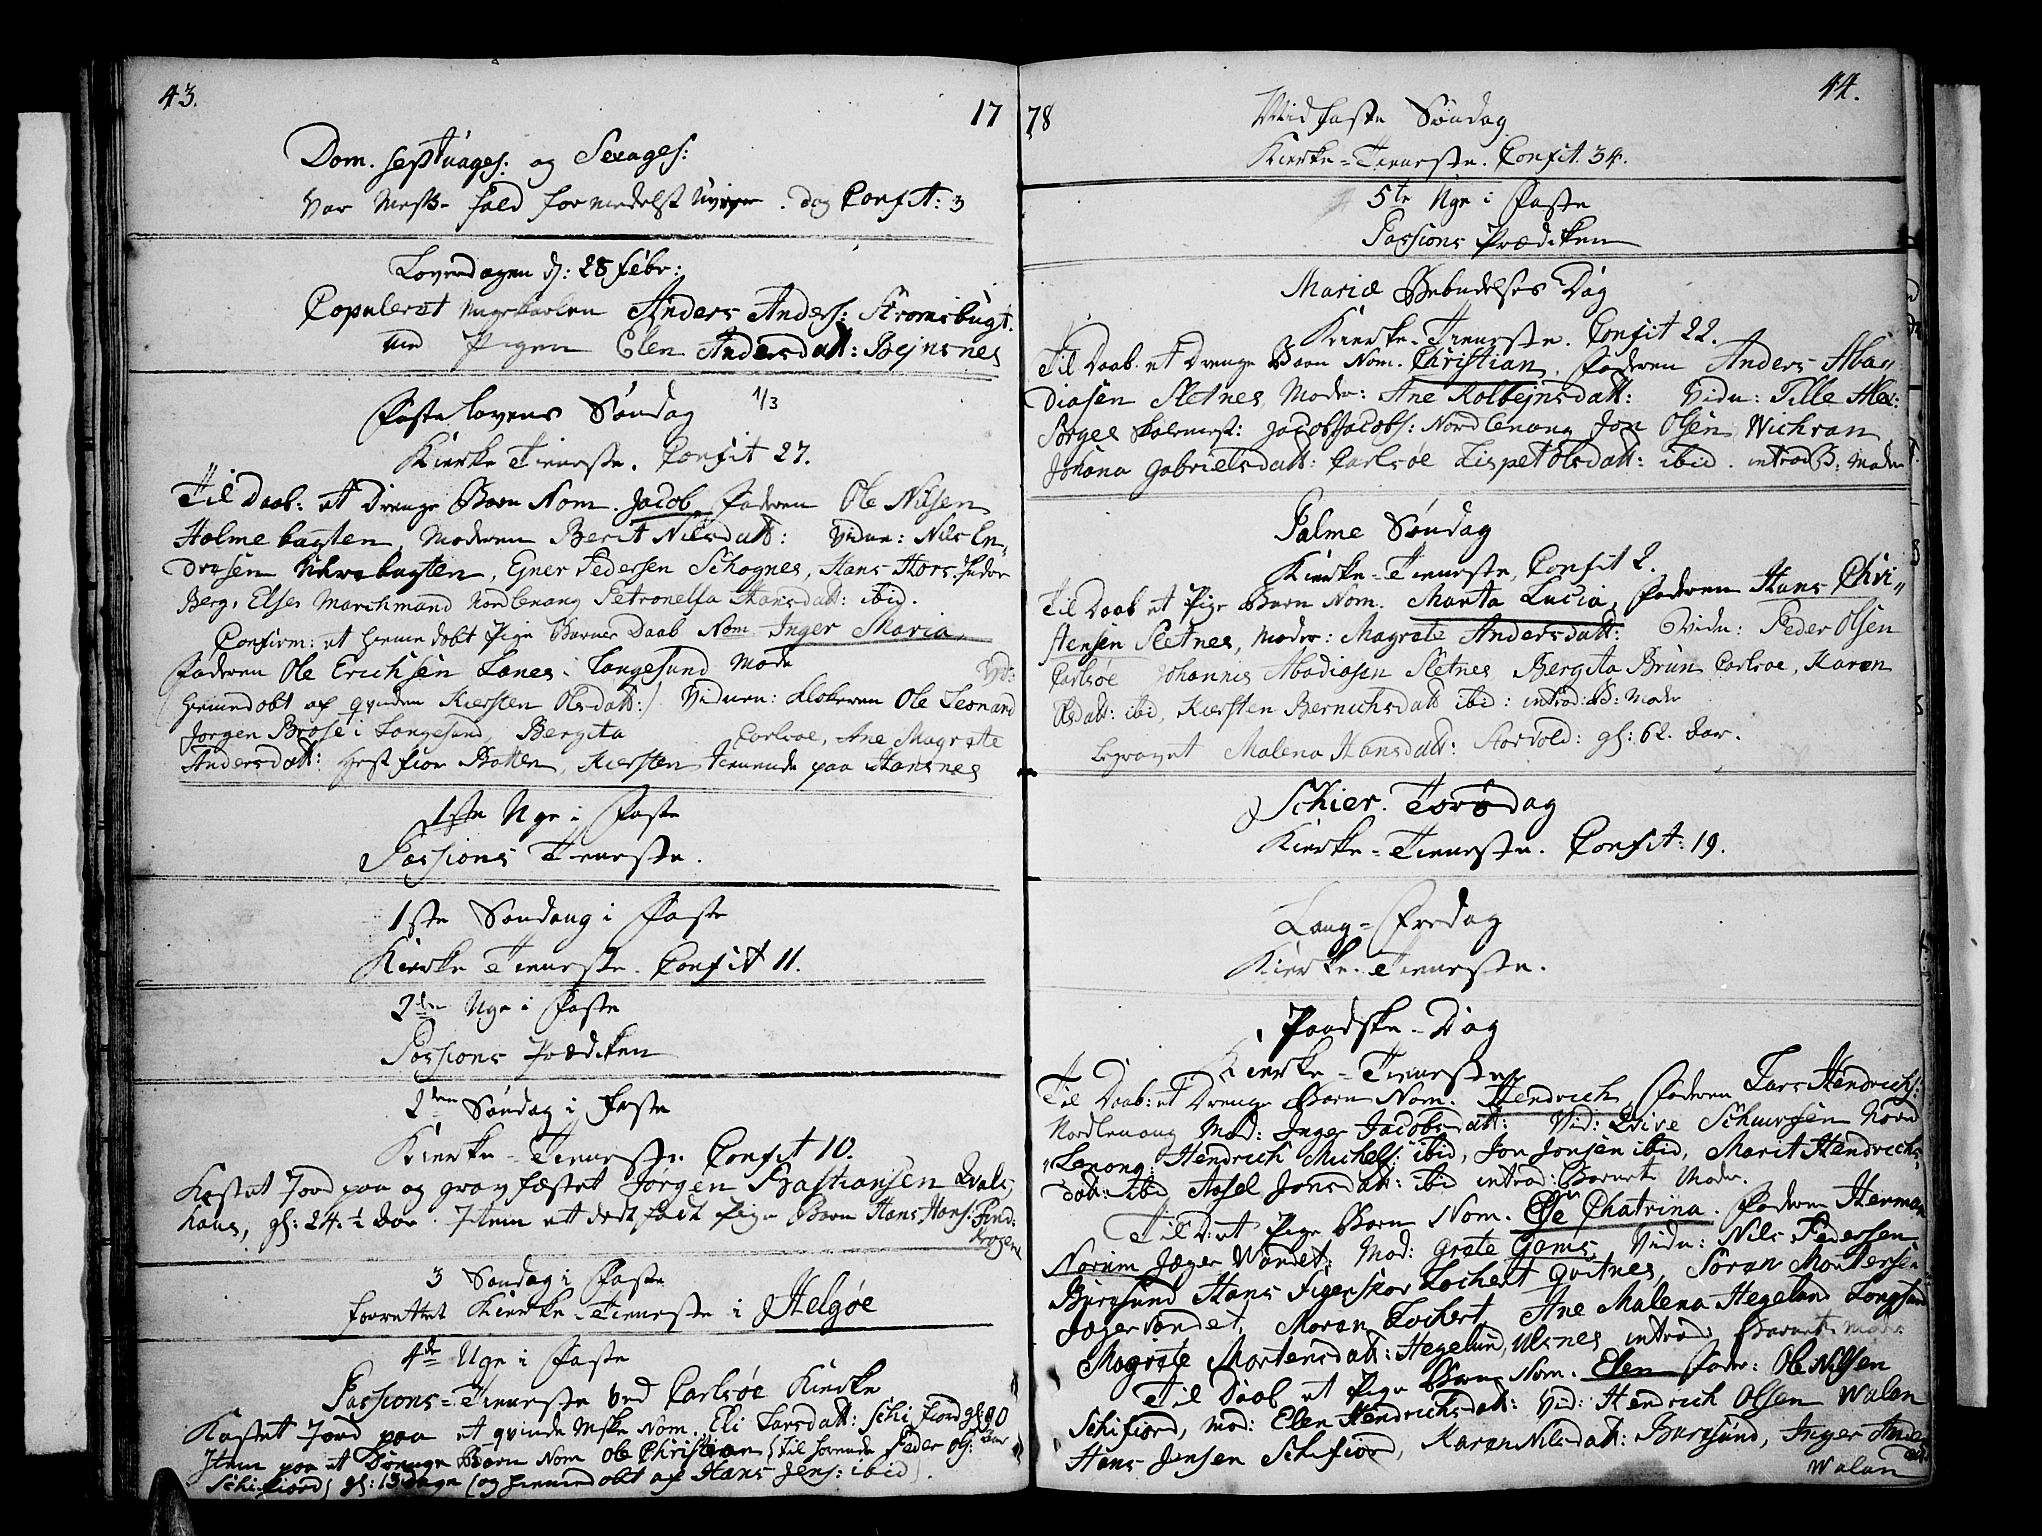 43.
17
Dom. septuages: og Sexages:
var Messe fald formedelst . dog Confit: 3
Løverdagen d: 28 febr:
Copuleret ungkarlen Anders Anders: Stromsbugt.
med Pigen Elen Andersdatt: Rejnsnes
Faste lavens Søndag 1/3
Kierke Tieneste. Confit 27.
Til Daab: et Drenge Barn Nom. Jacob, Faderen Ole Nilsen
Holmebugten, Moderen Berit Nilsdatt: Vidne: Nils En,,
dresen bugten, Ejner Pedersen Schognes, Hans Hors. Inder
Berg, Elses Marchmand Nordlenang Petronella Hansdatt: ibid.
Confirm: et hiemedøbt Pige Barnes Daab Nom. Inger Maria,
Faderen Ole Erichsen Lanes i Langesund Mode Vid:
(hiemedøbt af qvinden Kiersten Olsdatt:) Vidnen: klokeren Ole Leonard
Jørgen Brose i Langesund, Bergita Carlsøe, Ane Magrete
Andersdatt: Hestfior Botten, Kiersten tienende paa Hansnes
1ste Uge i Faste
Passions Tieneste.
1ste Søndag i Faste
Kierke Tieneste. Confit 11.
2den Uge i Faste
Passions Prædiken
2den Søndag i Faste
Kierke-Tieneste Confit 10.
Kastet Jord paa og gravfæstet Jørgen Bastiansen Qval,,
haus, gl: 24. ½ Aar. Item et dødfødt Pige Barn Hans Hans: Find:
krogen
3 Søndag i Faste
forrettet Kierke-Tieneste i Helgøe
4de Uge i Faste
Passions-Tieneste ved Carlsøe Kierke
Kastet Jord paa et qvinde Mske Nom. Eli Larsdatt: Schifiord gl: 90
Aar
Item paa et Drenge Barn Nom Ole Christian (til hørende Peder Ols:
Schifiord) gl: 13 dage (og hiemedøbt af Hans Jens: ibid).
78
44.
Midfaste Søndag
Kierke-Tieneste. Confit. 34.
5te Uge i Faste
Passions Prædiken
Mariæ Bebudelses Dag
Kierke-Tieneste. Confit 22.
Til Daab et Drenge Barn Nom. Christian, Faderen Anders Aba,,
diasen Sletnes, Moder: Ane Kolbejnsdatt: Vidn: Tille Alex:
Børges Skolemest: Jacob Jacobs: Nordlenang Jon Olsen Wichran
Johana Gabrielsdatt: Carlsøe Lispet Olsdatt: ibid. introd B: Moder
Palme Søndag
Kierke-Tieneste, Confit 2.
Til Daab et Pige Barn Nom. Marta Lucia, Faderen Hans Chri,,
stensen Sletnes, Moder: Magrate Andersdatt: Vidn: Peder Olsen
Carlsøe Johannis Abadiasen Sletnes Bergita Brun Carlsøe, Karen
Olsdatt: ibid, Kiersten Bernichsdatt ibid: introd: B: Moder
begravet Malena Hansdatt: Storvold: gl: 62. Aar.
Schier. Torsdag
Kierke-Tieneste. Confit: 19.
Lang-Fredag
Kierke-Tieneste.
Paaske-Dag
Kierke-Tieneste
Til Daab: et Drenge Barn Nom. Hendrich, Faderen Lars Hendrichs:
Nordlenang Mod: Inger Jacobsdatt: Vid: Qvive Schuursen Nord
Lenang: Hendrich Michels: ibid, Jon Jonsen ibid, Marit Hendrichs,,
datt: ibid, Aasel Jonsdatt: ibid introd: Barnets Moder.
Til D: et Pige Barn Nom. Else Chatrina. Faderen Herman
Norum Jæger Vandet, Mod: Grete Gams, Vidn: Nils Pedersen
Burøsund Hans Figenskov Lochert Qvitnes, Søran Mortense
Jægervandet, Maran Lochert, Ane Malena Hegelund Langsund
Magrete Mortensdatt: Hegelund, Ulsnes introd: Barnets Moder:
Til Daab et Pige Barn Nom. Elen Fader: Ole Nilsen
Schifiord, Mod: Elen Hendrichsdatt: Vid: Hendrich Olsen Walan
Hans Jensen Schifiord, Karen Nilsdatt: Burøsund, Inger Anders
datt:
Walan